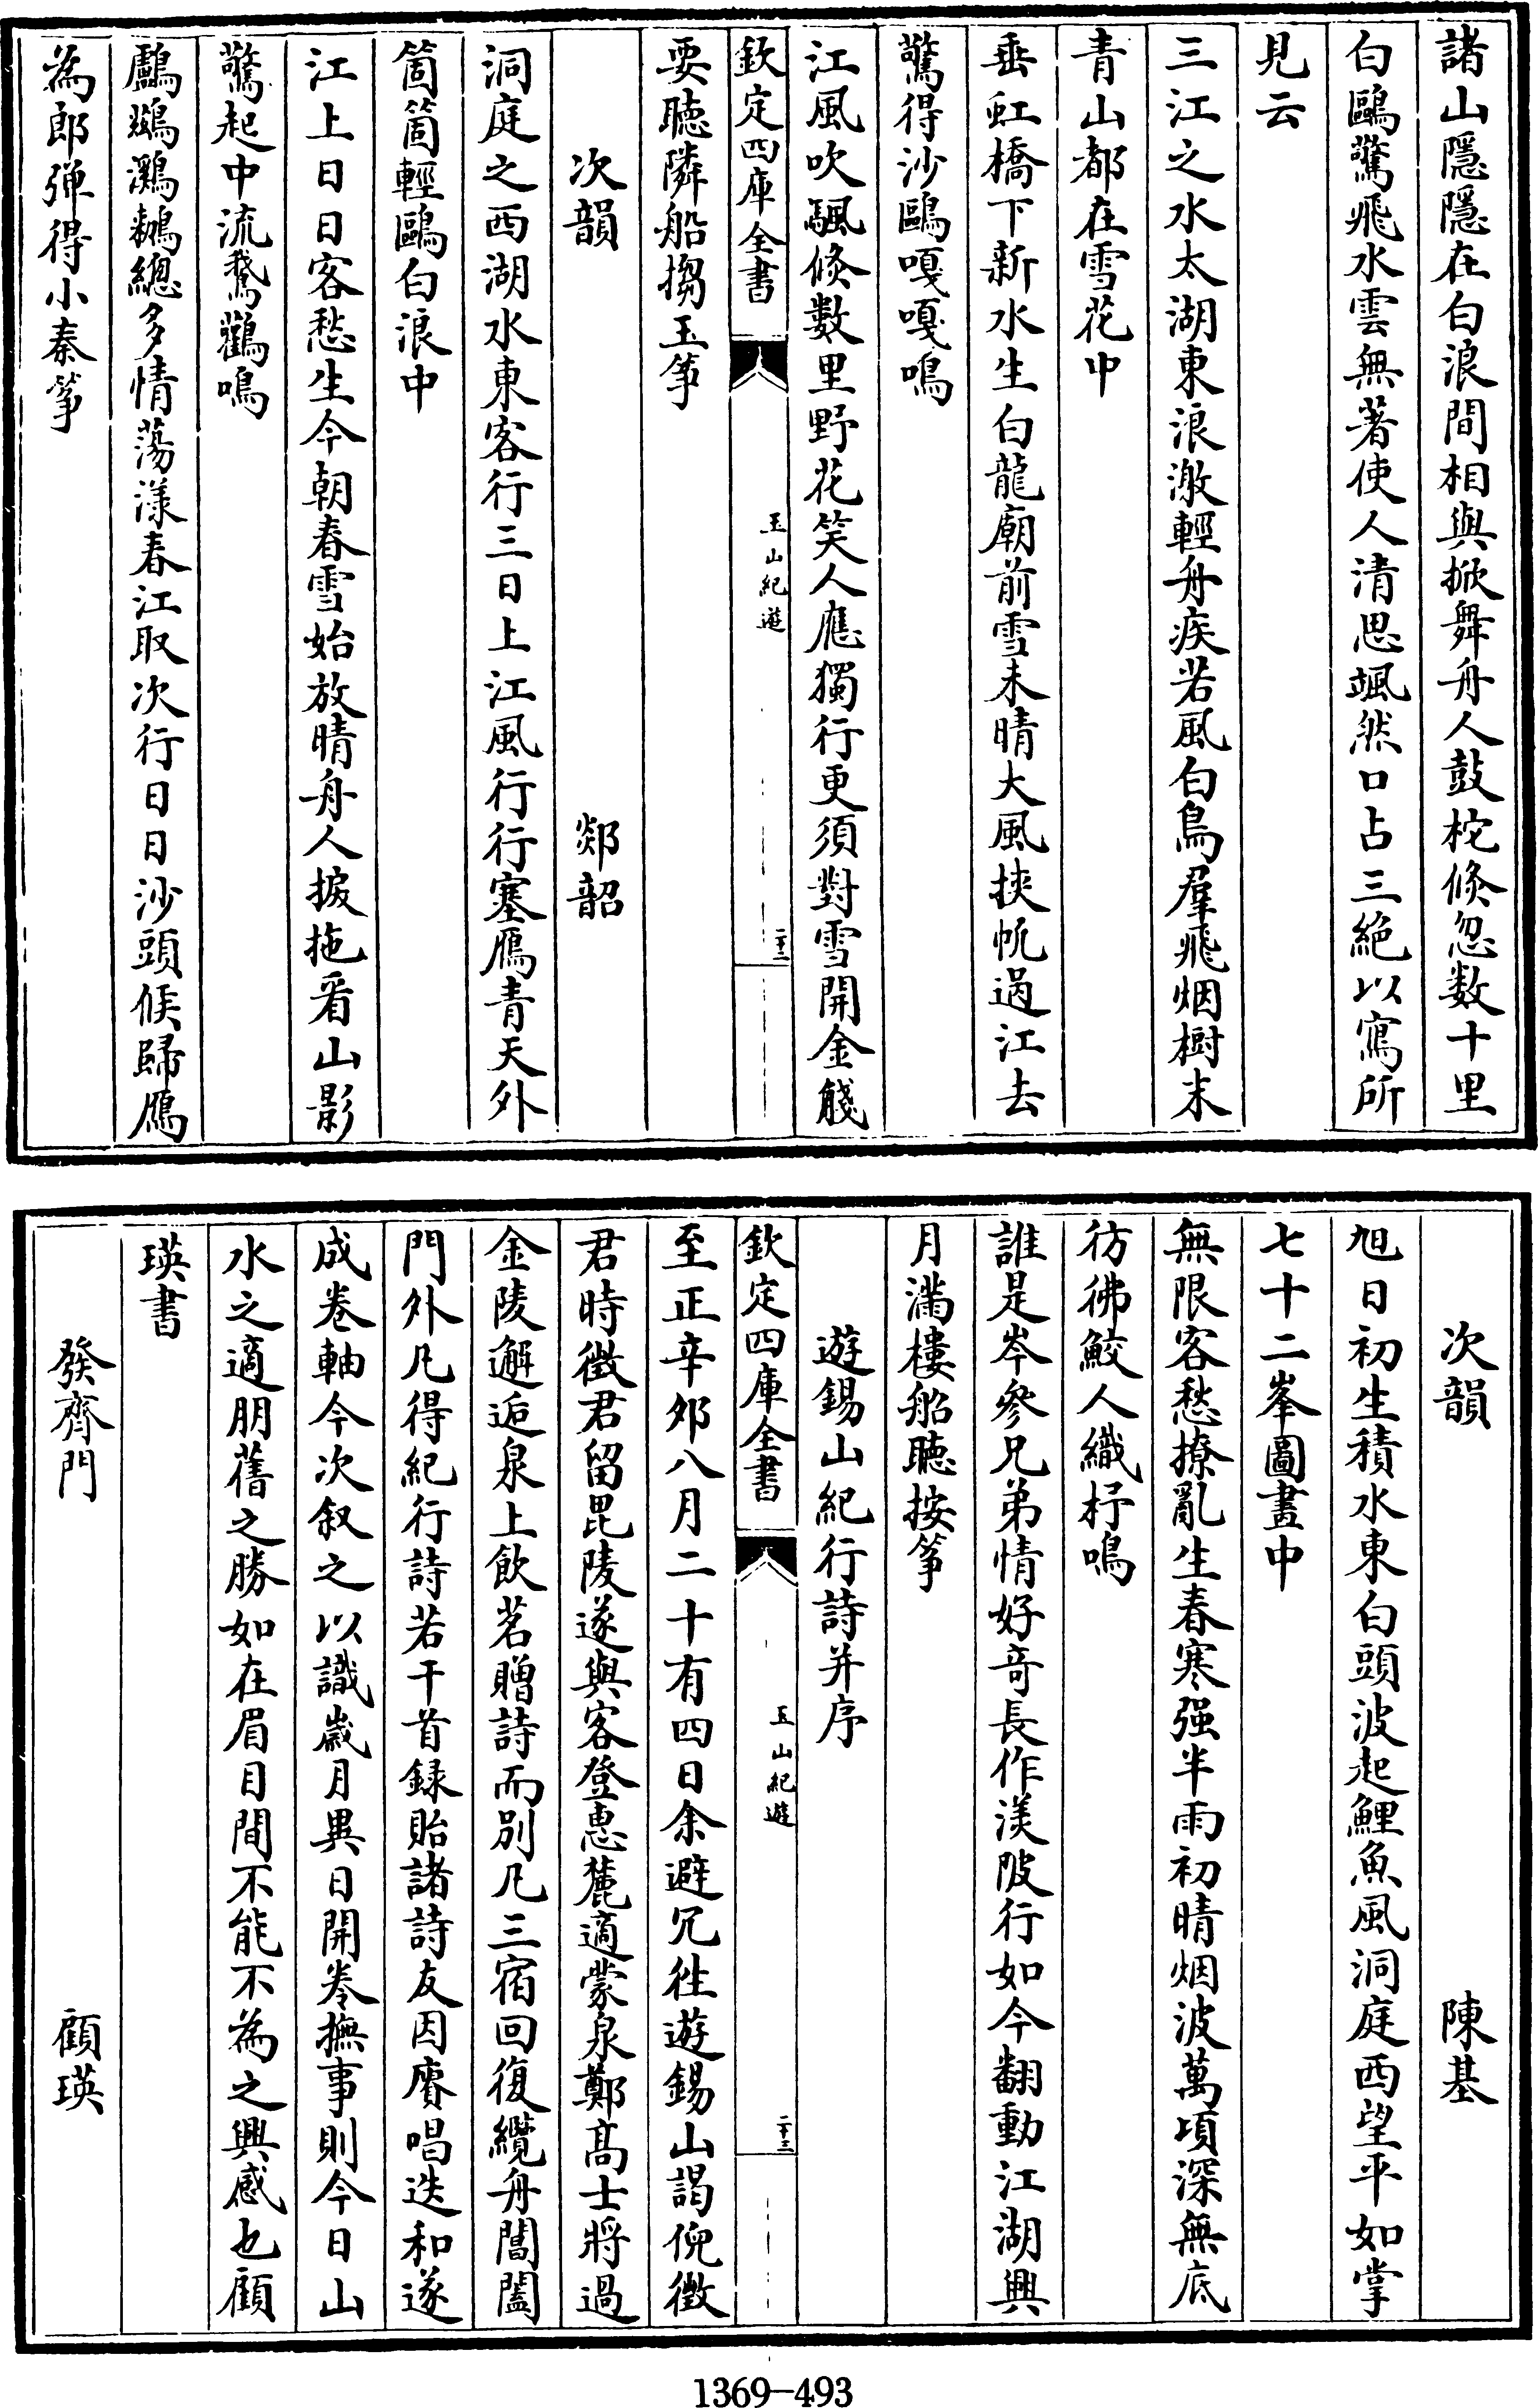 諸山隱隱在白浪間相與掀舞舟人鼓柁倐忽数十里
白鷗驚飛水雲無著使人清思颯然口占三絶以寫所
見云
三江之水太湖東浪激輕舟疾若風白鳥羣飛烟樹末
青山都在雪花中
垂虹橋下新水生白龍廟前雪未晴大風挾帆過江去
驚得沙鷗嘎嘎鳴
江風吹颿倐數里野花笑人應獨行更須對雪開金餞
欽定四庫全書
玉山紀遊
二十二
要聽隣船搊玉筝
次韻
郯韶
洞庭之西湖水東客行三日上江風行行行塞鴈青天外
箇箇輕鷗白浪中
江上日日客愁生今朝春雪始放晴舟人捩拖看山影
驚起中流鵞鸛鳴
鸕鷀鸂鶒總多情蕩漾春江取次行日日沙頭候歸鴈
為郎弹得小秦筝
次韻
陳基
旭日初生積水東白頭波起鯉魚風洞庭西望平如掌
七十二峯圖畫中
無限客愁撩亂生春寒强半雨初晴烟波萬頃深無底
彷彿鮫人織杼鳴
誰是岑參兄弟情好竒長作渼陂行如今翻動江湖興
月滿樓船聽按筝
遊錫山紀行詩并序
欽定四庫全書
玉山紀遊
二十三
至正辛夘八月二十有四日余避冗徃遊錫山謁倪徴
君時徴君留毘陵遂與客登惠麓適蒙泉鄭髙士將過
金陵邂逅泉上飲茗贈詩而別凡三宿回復纜舟閶闔
門外凡得紀行詩若干首録貽諸詩友因賡唱迭和遂
成卷軸今次叙之以識歲月異日開卷撫事則今日山
水之適朋舊之勝如在眉目間不能不為之興感也顧
瑛書
發齊門
顧瑛
1369-493